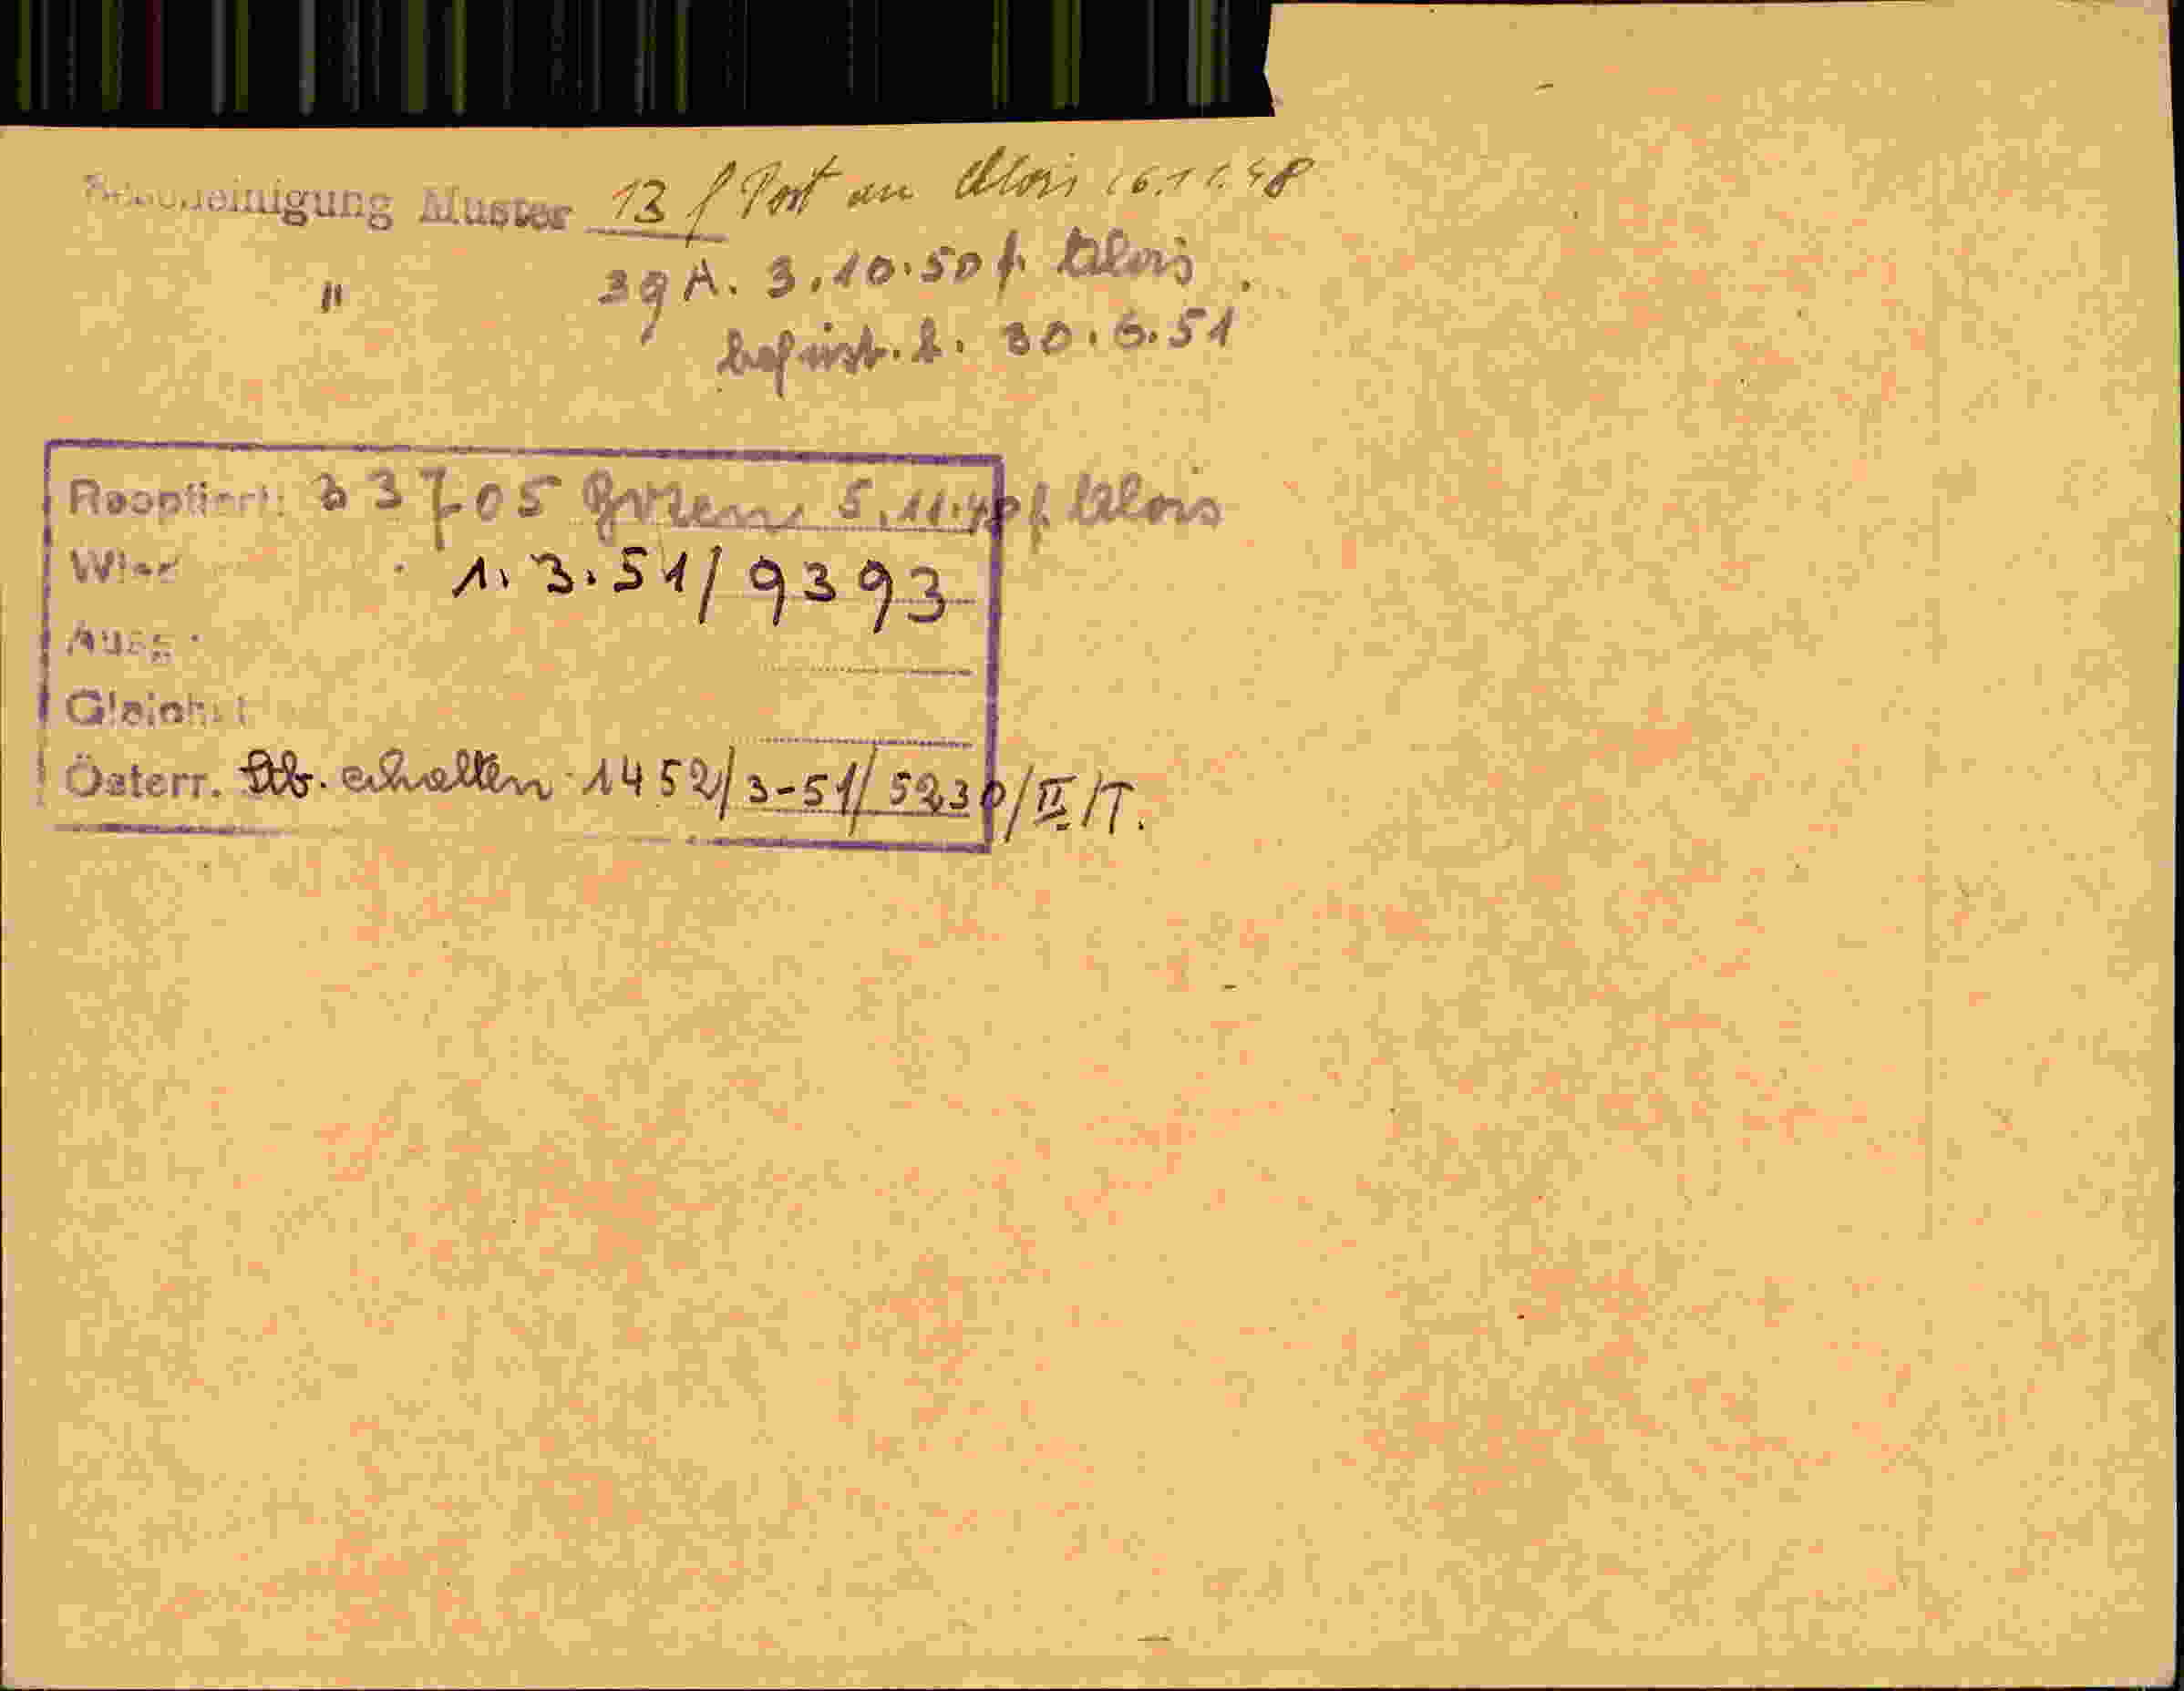 Bescheinigung Muster 13 f Post an Alois 16.11.48
" 39 A. 3.10.50 f. Alois
befrist. b. 30.6.51
Reoptiert: 33705 Bozen 5.11.48 f. Alois
Wied 1.3.51/9393
Ausg
Gleichst
Österr. Stb. erhalten 1452/3-51/5230/II/T.